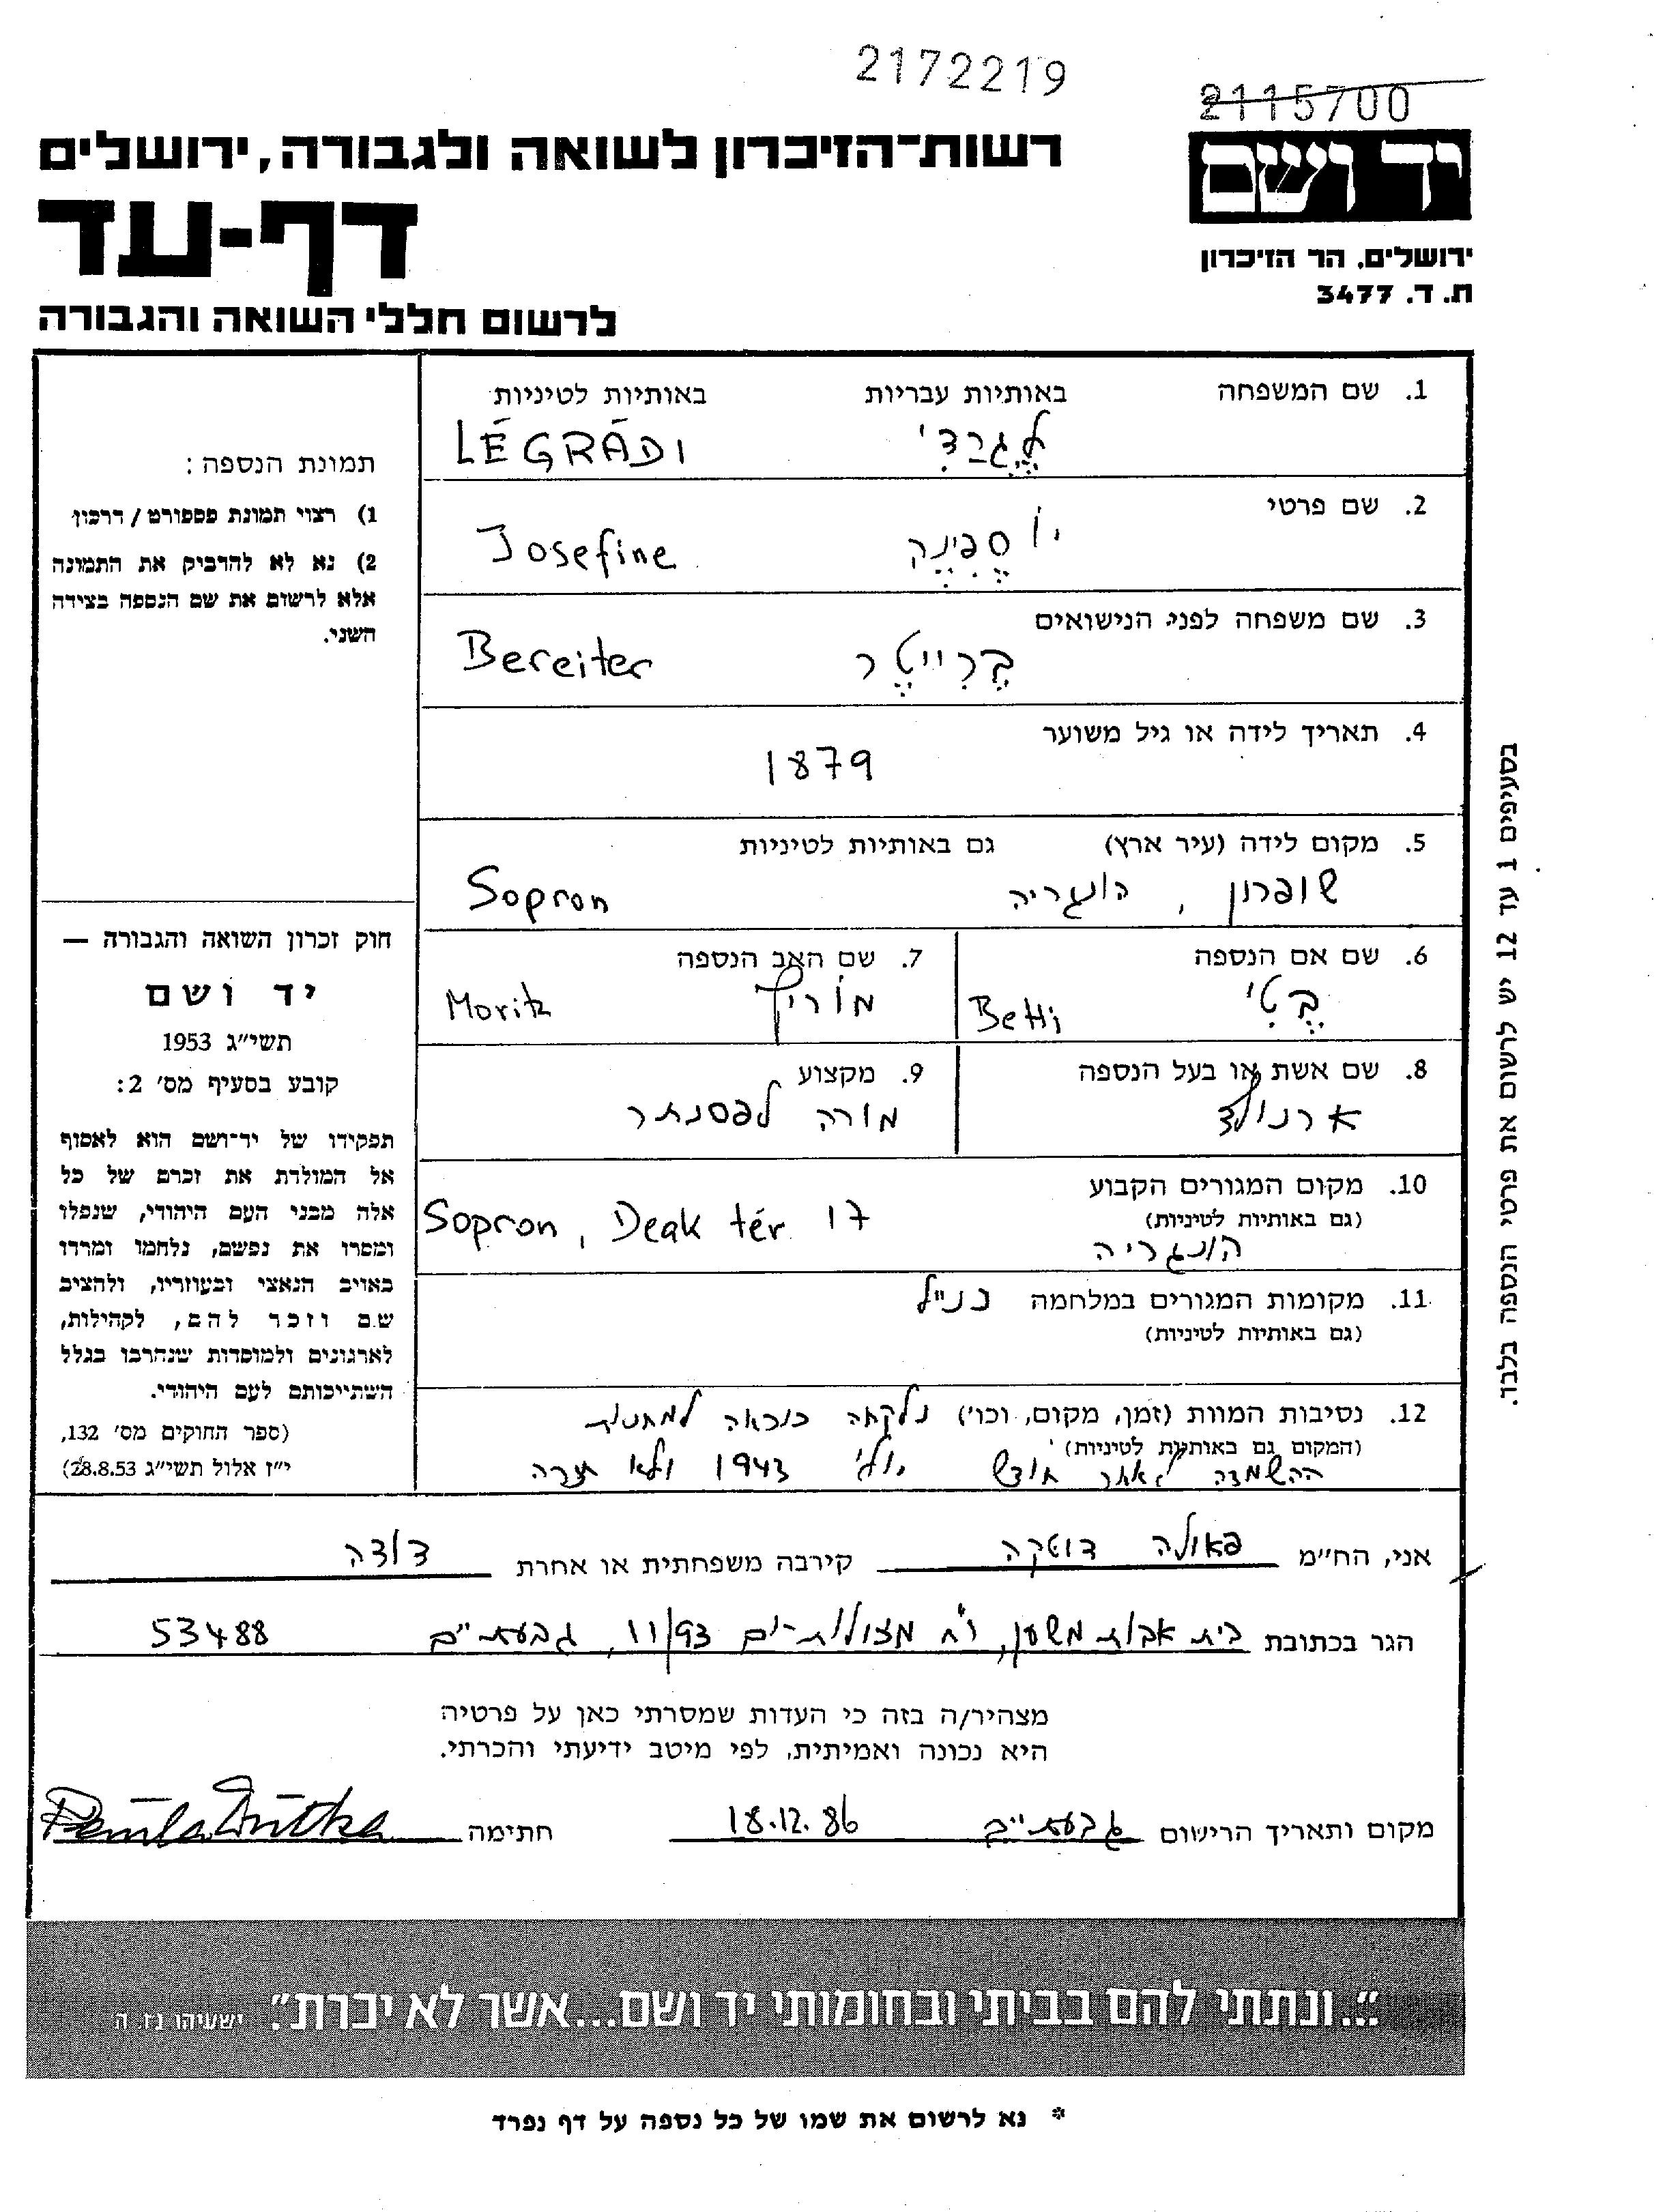 2172219
2115700
יד ושם
רשות־הזיכרון לשואה ולגבורה, ירושלים
דף-עד
ירושלים, הר הזיכרון
ת. ד. 3477
לרשום חללי השואה והגבורה
1. שם המשפחה באותיות עבריות באותיות לטיניות
לֶגרַדִי LÉGRÁDI
2. שם פרטי
יוֹסֶפִינֶה Josefine
3. שם משפחה לפני הנישואים
בֶרִייטֶר Bereiter
4. תאריך לידה או גיל משוער
1879
5. מקום לידה (עיר ארץ) גם באותיות לטיניות
שופרון, הונגריה Sopron
6. שם אם הנספה
בֶטִי Betti
7. שם האב הנספה
מוֹריץ Moritz
8. שם אשת או בעל הנספה
ארנולד
9. מקצוע
מורה לפסנתר
10. מקום המגורים הקבוע
(גם באותיות לטיניות)
Sopron, Deak tér 17
הונגריה
11. מקומות המגורים במלחמה כנ"ל
(גם באותיות לטיניות)
12. נסיבות המוות (זמן, מקום, וכו') נלקחה כנראה למחנות
(המקום גם באותיות לטיניות)
ההשמדה לאחר חודש יולי 1943 ולא חזרה
תמונת הנספה:
1) רצוי תמונת פספורט / דרכון
2) נא לא להדביק את התמונה
אלא לרשום את שם הנספה בצידה
השני.
חוק זכרון השואה והגבורה —
יד ושם
תשי"ג 1953
קובע בסעיף מס' 2:
תפקידו של יד־ושם הוא לאסוף
אל המולדת את זכרם של כל
אלה מבני העם היהודי, שנפלו
ומסרו את נפשם, נלחמו ומרדו
באויב הנאצי ובעוזריו, ולהציב
שם וזכר להם, לקהילות,
לארגונים ולמוסדות שנחרבו בגלל
השתייכותם לעם היהודי.
(ספר החוקים מס' 132,
י"ז אלול תשי"ג 28.8.53)
בסעיפים 1 עד 12 יש לרשום את פרטי הנספה בלבד.
אני, הח"מ פאולה דוטקה קירבה משפחתית או אחרת דודה
הגר בכתובת בית אבות משען, רח' מצולות-ים 11/93, גבעת"ים 53488
מצהיר/ה בזה כי העדות שמסרתי כאן על פרטיה
היא נכונה ואמיתית, לפי מיטב ידיעתי והכרתי.
מקום ותאריך הרישום גבעת"ים 18.12.86 חתימה Paula Dutka
"...ונתתי להם בביתי ובחומותי יד ושם...אשר לא יכרת". ישעיהו נו, ה
* נא לרשום את שמו של כל נספה על דף נפרד